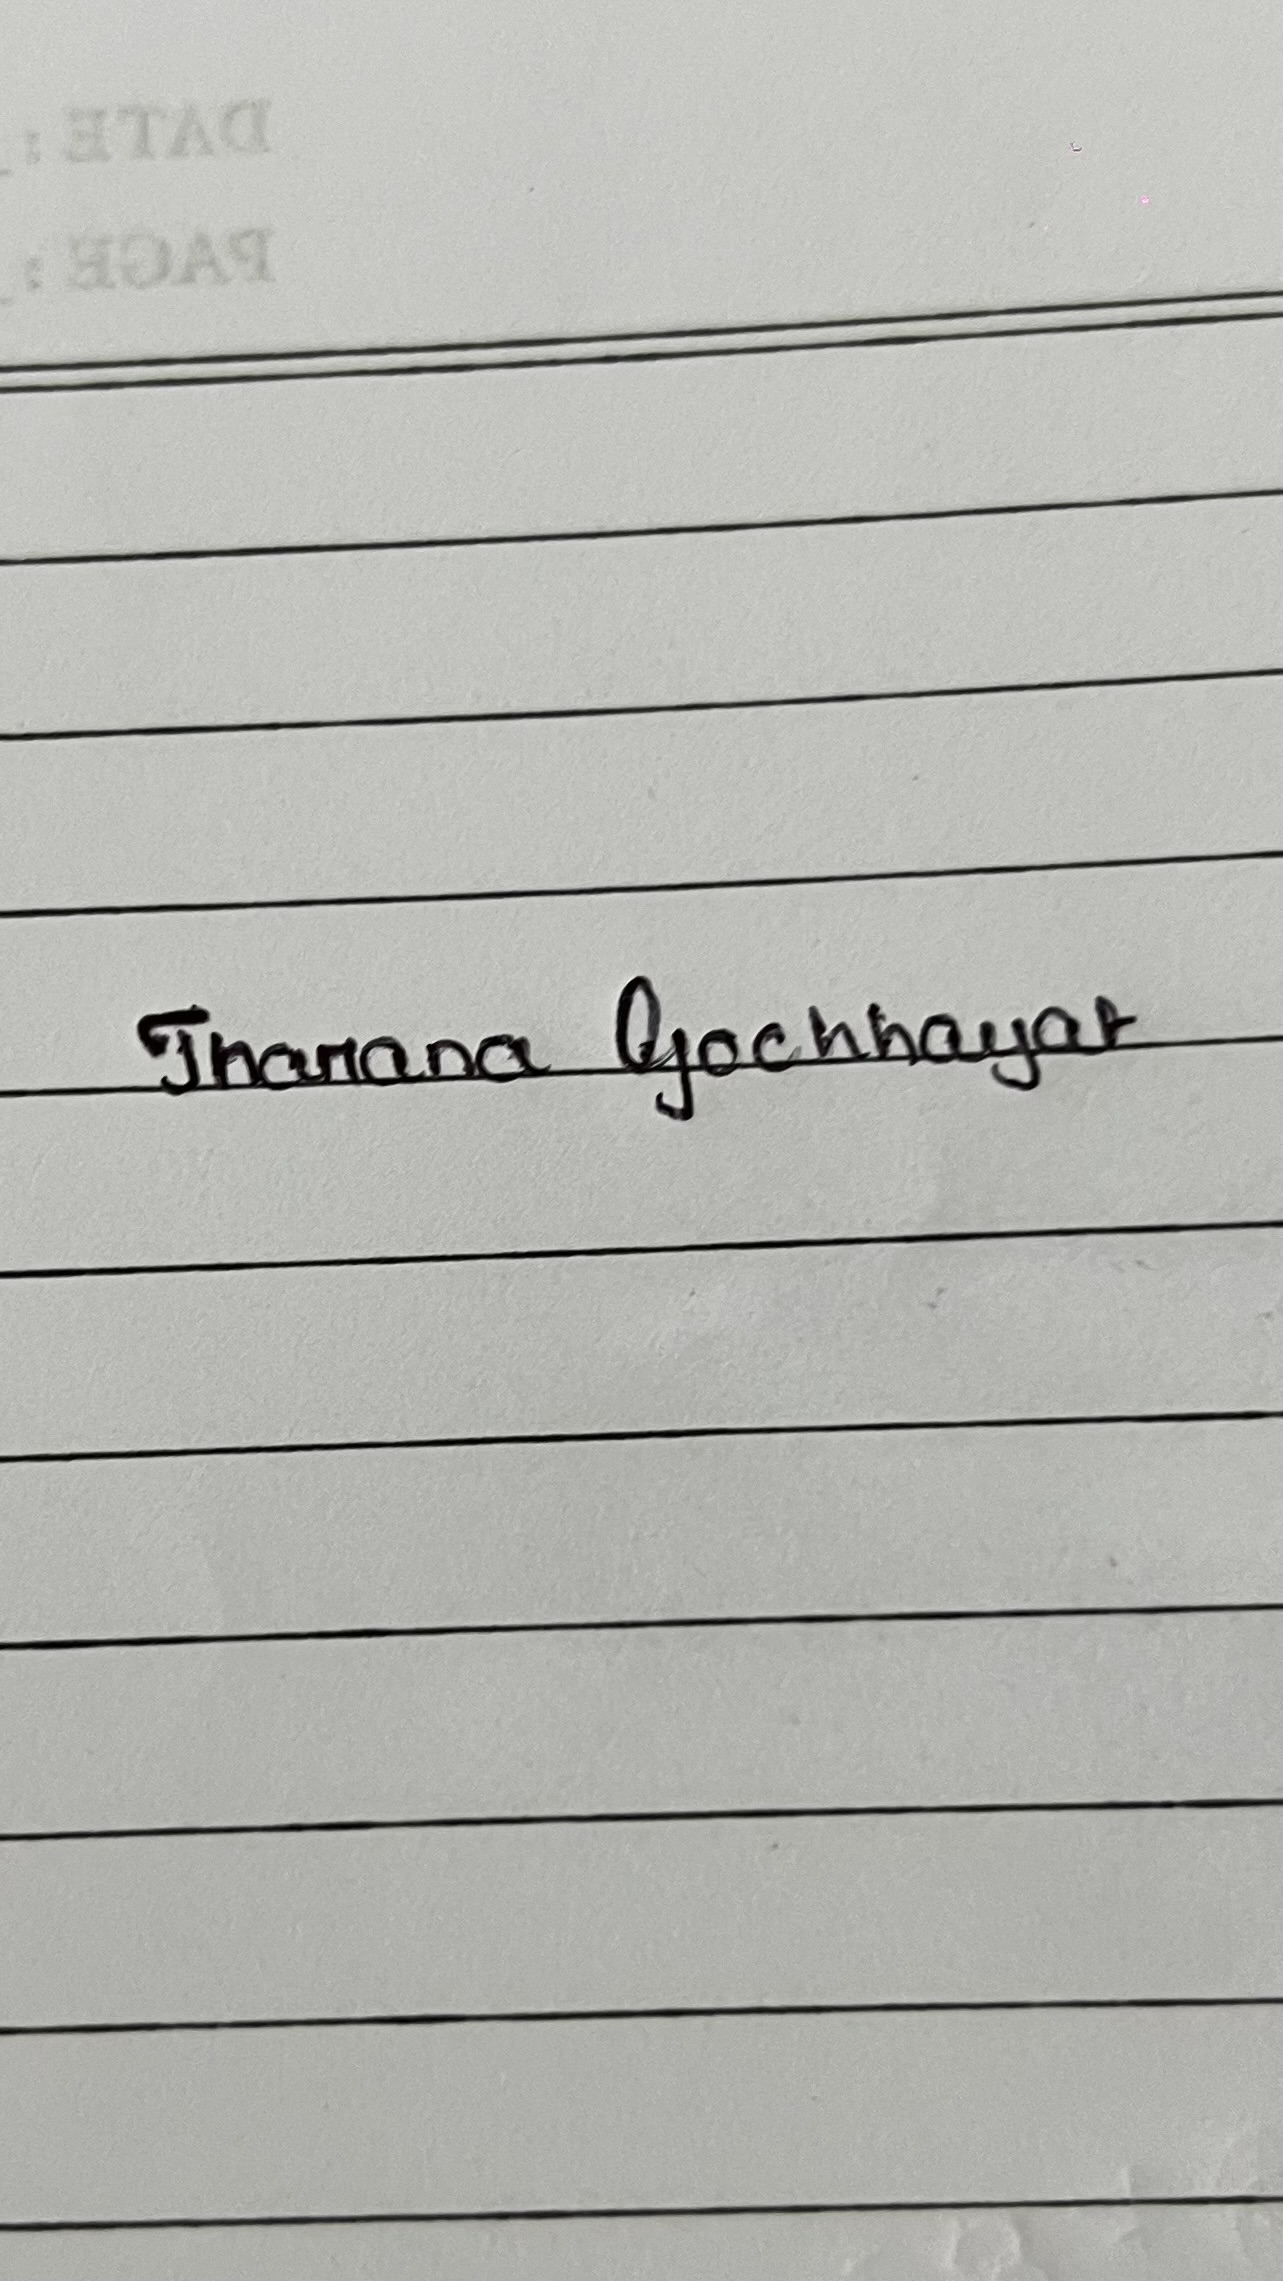 DATE :
PAGE :
Jharana Gochhayat